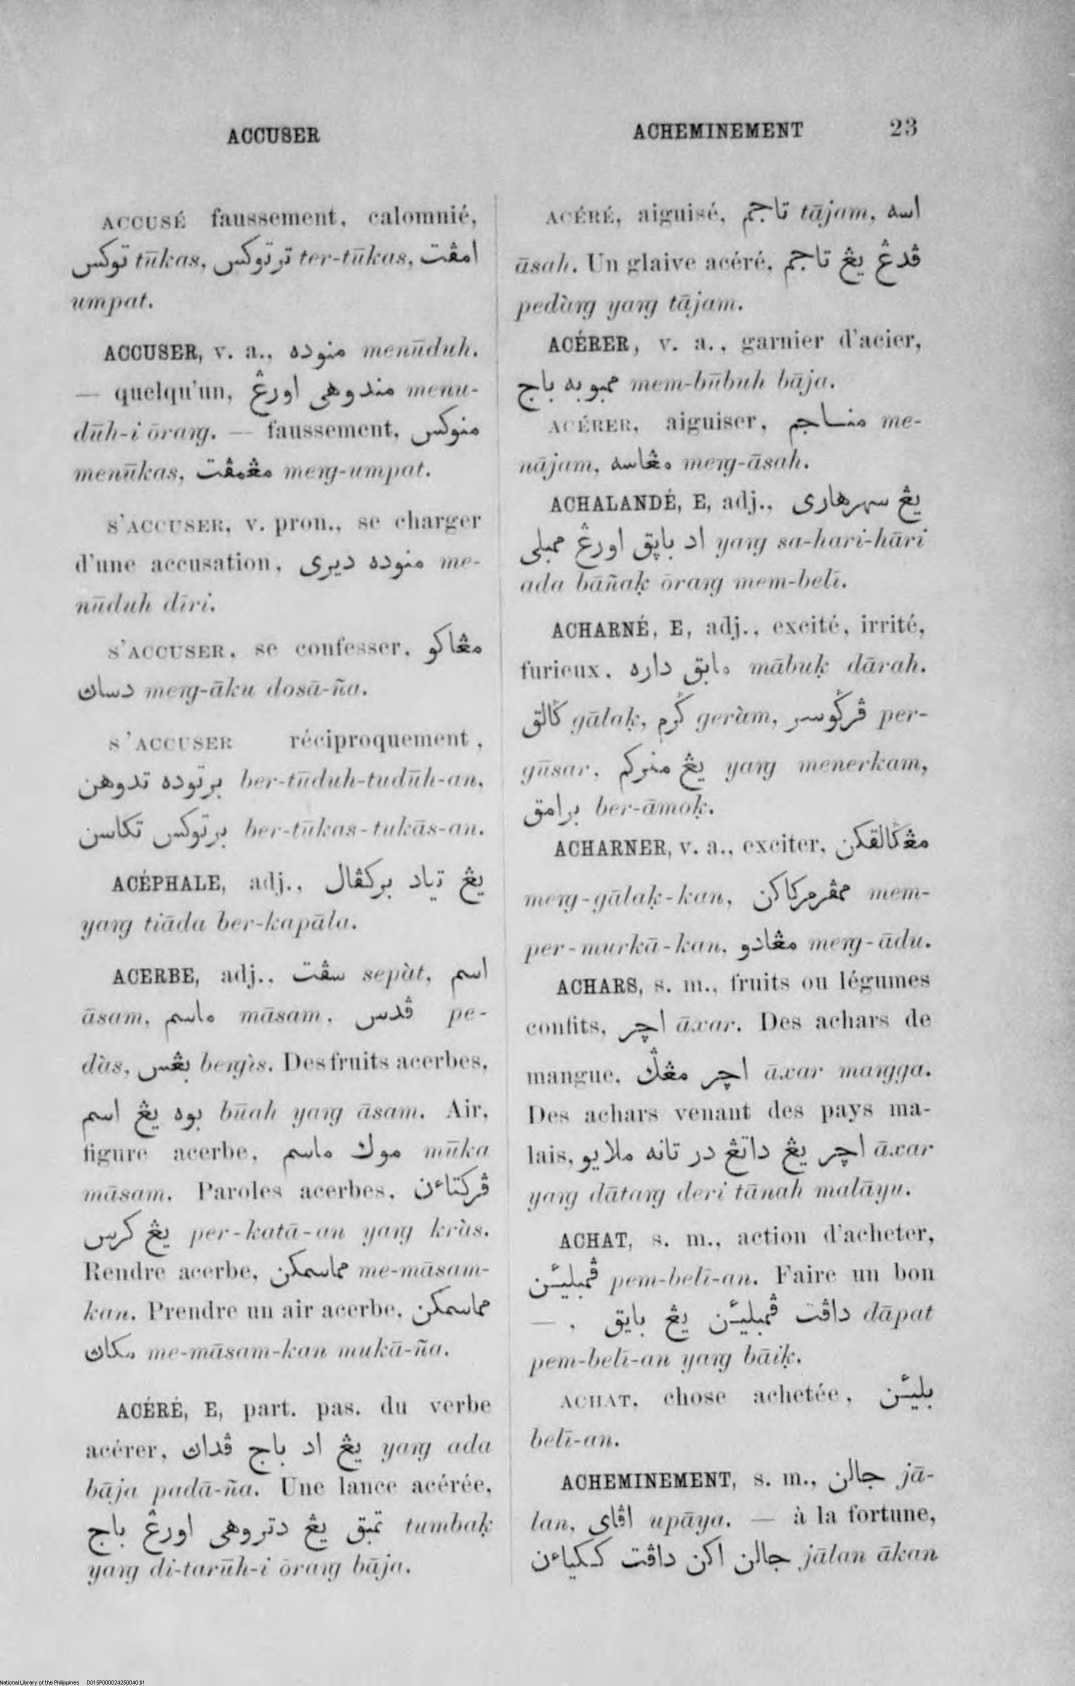 ACCUSER
ACHEMINEMENT 23
ACCUSÉ faussement, calomnié,
توكس tūkas, ترتوكس ter-tūkas, امڤت
umpat.
ACCUSER, v. a., منوده menūduh.
— quelqu'un, مندوهي اورڠ menu-
dūh-i ōraŋg. — faussement, منوكس
menūkas, مڠمڤت meŋg-umpat.
S'ACCUSER, v. pron., se charger
d'une accusation, منوده ديري me-
nūduh dīri.
S'ACCUSER, se confesser, مڠاكو
دساڽ meŋg-āku dosā-ña.
S'ACCUSER réciproquement,
برتوده تدوهن ber-tūduh-tudūh-an,
برتوكس تكاسن ber-tūkas-tukās-an.
ACÉPHALE, adj., يڠ تياد بركڤال
yaŋg tiāda ber-kapāla.
ACERBE, adj., سڤت sepàt, اسم
āsam, ماسم māsam, ڤدس pe-
dàs, بڠس beŋgìs. Des fruits acerbes,
بوه يڠ اسم būah yaŋg āsam. Air,
figure acerbe, موك ماسم mūka
māsam. Paroles acerbes, ڤركتاءن
يڠ كرس per-katā-an yaŋg kràs.
Rendre acerbe, مماسمكن me-māsam-
kan. Prendre un air acerbe, مماسمكن
مكاڽ me-māsam-kan mukā-ña.
ACÉRÉ, E, part. pas. du verbe
acérer, يڠ اد باج ڤداڽ yaŋg ada
bāja padā-ña. Une lance acérée,
تمبق يڠ دتروهي اورڠ باج tumbaḳ
yaŋg di-tarūh-i ōraŋg bāja.
ACÉRÉ, aiguisé, تاجم tājam, اسه
āsah. Un glaive acéré, ڤدڠ يڠ تاجم
pedàŋg yaŋg tājam.
ACÉRER, v. a., garnier d'acier,
ممبوبه باج mem-būbuh bāja.
ACÉRER, aiguiser, مناجم me-
nājam, مڠاسه meŋg-āsah.
ACHALANDÉ, E, adj., يڠ سهرهاري
اد باڽق اورڠ ممبلي yaŋg sa-hari-hāri
ada bāñaḳ ōraŋg mem-belī.
ACHARNÉ, E, adj., excité, irrité,
furieux, مابق داره mābuḳ dārah.
ݢالق gālaḳ, ݢرم geràm, ڤرݢوسر per-
gūsar, يڠ منركم yaŋg menerkam,
برامق ber-āmoḳ.
ACHARNER, v. a., exciter, مڠݢالقكن
meŋg-gālaḳ-kan, ممڤرمركاكن mem-
per-murkā-kan, مڠادو meŋg-ādu.
ACHARS, s. m., fruits ou légumes
confits, اچر āxar. Des achars de
mangue, اچر مڠݢ āxar maŋgga.
Des achars venant des pays ma-
lais, اچر يڠ داتڠ در تانه ملايو āxar
yaŋg dātaŋg deri tānah malāyu.
ACHAT, s. m., action d'acheter,
ڤمبليئن pem-belī-an. Faire un bon
—, داڤت ڤمبليئن يڠ بايق dāpat
pem-belī-an yaŋg bāiḳ.
ACHAT, chose achetée, بليئن
belī-an.
ACHEMINEMENT, s. m., جالن jā-
lan, اڤاي upāya. — à la fortune,
جالن اكن داڤت ككياءن jālan ākan
National Library of the Philippines